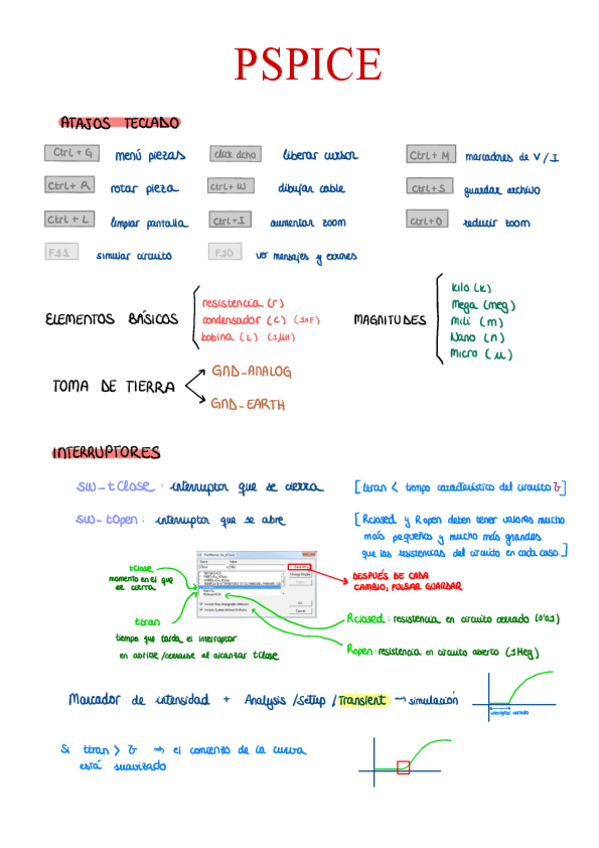 PSPICE
ATAJOS TECLADO
Ctrl + G menú piezas click dcho liberar cursor Ctrl + M marcadores de V / I
Ctrl + A rotar pieza Ctrl + W dibujar cable Ctrl + S guardar archivo
Ctrl + L limpiar pantalla Ctrl + I aumentar zoom Ctrl + O reducir zoom
F11 simular circuito F10 ver mensajes y errores
ELEMENTOS BÁSICOS
resistencia (r)
condensador (c) (1nF)
bobina (L)
MAGNITUDES
Kilo (K)
Mega (meg)
Mili (m)
Nano (n)
Micro (u)
TOMA DE TIERRA
GND_ANALOG
GND_EARTH
INTERRUPTORES
sw_tClose : interruptor que se cierra [ttran < tiempo característico del circuito]
sw_tOpen : interruptor que se abre [Rclosed y Ropen deben tener valores mucho
más pequeños y mucho más grandes
que las resistencias del circuito en cada caso]
tClose
momento en el que
se cierra
ttran
tiempo que tarda el interruptor
en abrirse /cerrarse al alcanzar tClose
DESPUÉS DE CADA
CAMBIO, PULSAR GUARDAR
Rclosed : resistencia en circuito cerrado (0'01)
Ropen : resistencia en circuito abierto (1Meg)
Marcador de intensidad + Analysis /Setup / Transient → simulación
Si ttran > ⇒ el comienzo de la curva
está suavizado